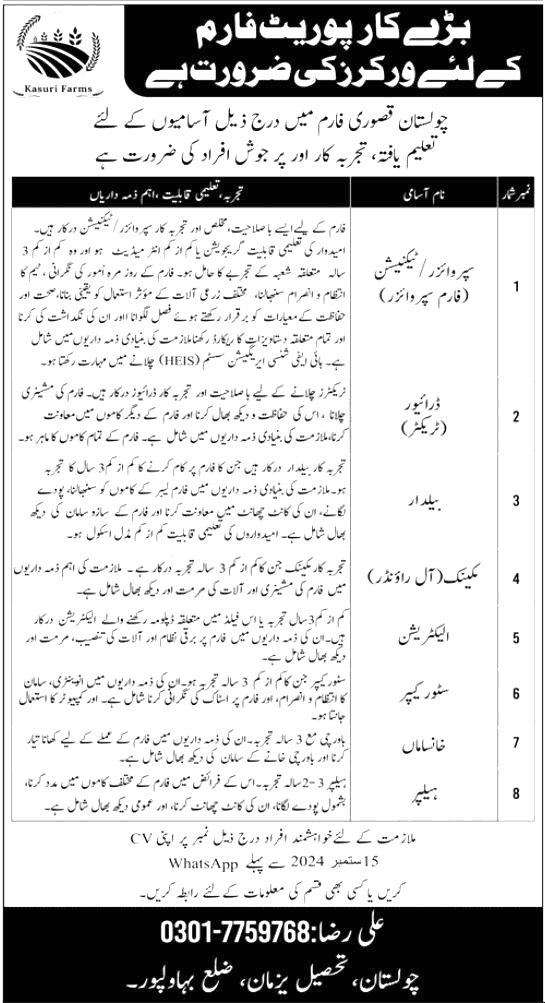 Kasuri Farms
بڑے کارپوریٹ فارم
کے لئے ورکرز کی ضرورت ہے
چولستان قصوری فارم میں درج ذیل آسامیوں کے لئے
تعلیم یافتہ، تجربہ کار اور پر جوش افراد کی ضرورت ہے
نمبر شمار
نام آسامی
تجربہ، تعلیمی قابلیت، اہم ذمہ داریاں
1
سپروائزر/ٹیکنیشن
(فارم سپروائزر)
فارم کے لیے ایسے باصلاحیت، مخلص اور تجربہ کار سپروائزر/ٹیکنیشن درکار ہیں۔
امیدوار کی تعلیمی قابلیت گریجویشن یا کم از کم انٹر میڈیٹ ہو اور وہ کم از کم 3
سالہ متعلقہ شعبہ کے تجربے کا حامل ہو۔ فارم کے روز مرہ اُمور کی نگرانی، ٹیم کا
انتظام و انصرام سنبھالنا، مختلف زرعی آلات کے مؤثر استعمال کو یقینی بنانا، صحت اور
حفاظت کے معیارات کو برقرار رکھتے ہوئے فصل لگوانا اور ان کی نگہداشت کی کرنا
اور تمام متعلقہ دستاویزات کا ریکارڈ رکھنا ملازمت کی بنیادی ذمہ داریوں میں شامل
ہے۔ ہائی ایفی شنسی ایریگیشن سسٹم (HEIS) چلانے میں مہارت رکھتا ہو۔
2
ڈرائیور
(ٹریکٹر)
ٹریکٹرز چلانے کے لیے باصلاحیت اور تجربہ کار ڈرائیوز درکار ہیں۔ فارم کی مشینری
چلانا، اس کی حفاظت و دیکھ بھال کرنا اور فارم کے دیگر کاموں میں معاونت
کرنا، ملازمت کی بنیادی ذمہ داریوں میں شامل ہے۔ فارم کے تمام کاموں کا ماہر ہو۔
3
بیلدار
تجربہ کار بیلدار درکار ہیں جن کا فارم پر کام کرنے کا کم از کم 3 سال کا تجربہ
ہو۔ ملازمت کی بنیادی ذمہ داریوں میں فارم لیبر کے کاموں کو سنبھالنا، پودے
لگانے، ان کی کانٹ چھانٹ میں معاونت کرنا اور فارم کے سازو سامان کی دیکھ
بھال شامل ہے۔ امیدواروں کی تعلیمی قابلیت کم از کم مڈل اسکول ہو۔
4
مکینک (آل راؤنڈر)
تجربہ کار مکینک جن کا کم از کم 3 سالہ تجربہ درکار ہے۔ ملازمت کی اہم ذمہ داریوں
میں فارم کی مشینری اور آلات کی مرمت اور دیکھ بھال شامل ہے۔
5
الیکٹریشن
کم از کم 3 سال تجربہ یا اس فیلڈ میں متعلقہ ڈپلومہ رکھنے والے الیکٹریشن درکار
ہیں۔ ان کی ذمہ داریوں میں فارم پر برقی نظام اور آلات کی تنصیب، مرمت اور
دیکھ بھال شامل ہے۔
6
سٹور کیپر
سٹور کیپر جن کا کم از کم 3 سالہ تجربہ ہو۔ ان کی ذمہ داریوں میں انوینٹری، سامان
کا انتظام و انصرام، اور فارم پر اسٹاک کی نگرانی کرنا شامل ہے۔ اور کمپیوٹر کا استعمال
جانتا ہو۔
7
خانساماں
باورچی مع 3 سالہ تجربہ۔ ان کی ذمہ داریوں میں فارم کے عملے کے لیے کھانا تیار
کرنا اور باورچی خانے کے سامان کی دیکھ بھال شامل ہے۔
8
ہیلپر
ہیلپر 3-2 سالہ تجربہ۔ اس کے فرائض میں فارم کے مختلف کاموں میں مدد کرنا،
بشمول پودے لگانا، ان کی کانٹ چھانٹ کرنا، اور عمومی دیکھ بھال شامل ہے۔
ملازمت کے لئے خواہشمند افراد درج ذیل نمبر پر اپنی CV
15 ستمبر 2024 سے پہلے WhatsApp
کریں یا کسی بھی قسم کی معلومات کے لئے رابطہ کریں۔
علی رضا: 0301-7759768
چولستان، تحصیل یزمان، ضلع بہاولپور۔